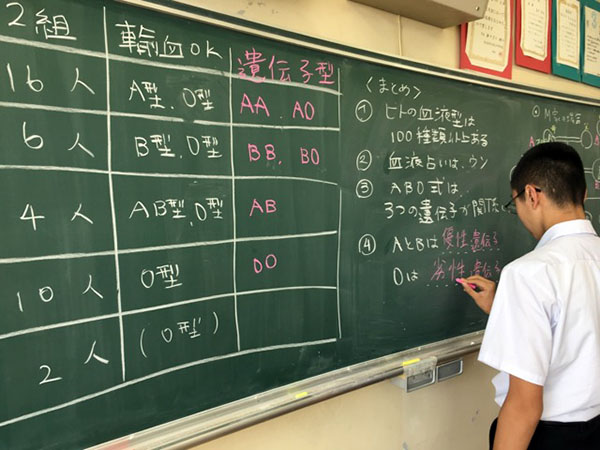 2組 輸血OK 遺伝子型
16人 A型、O型 AA、AO
6人 B型、O型 BB、BO
4人 AB型、O型 AB
10人 O型 OO
2人 (O型)
<まとめ>
① ヒトの血液型は
100種類以上ある
② 血液占いは、ウソ
③ ABO式は、
3つの遺伝子が関係
④ AとBは優性遺伝子
Oは 劣性遺伝子